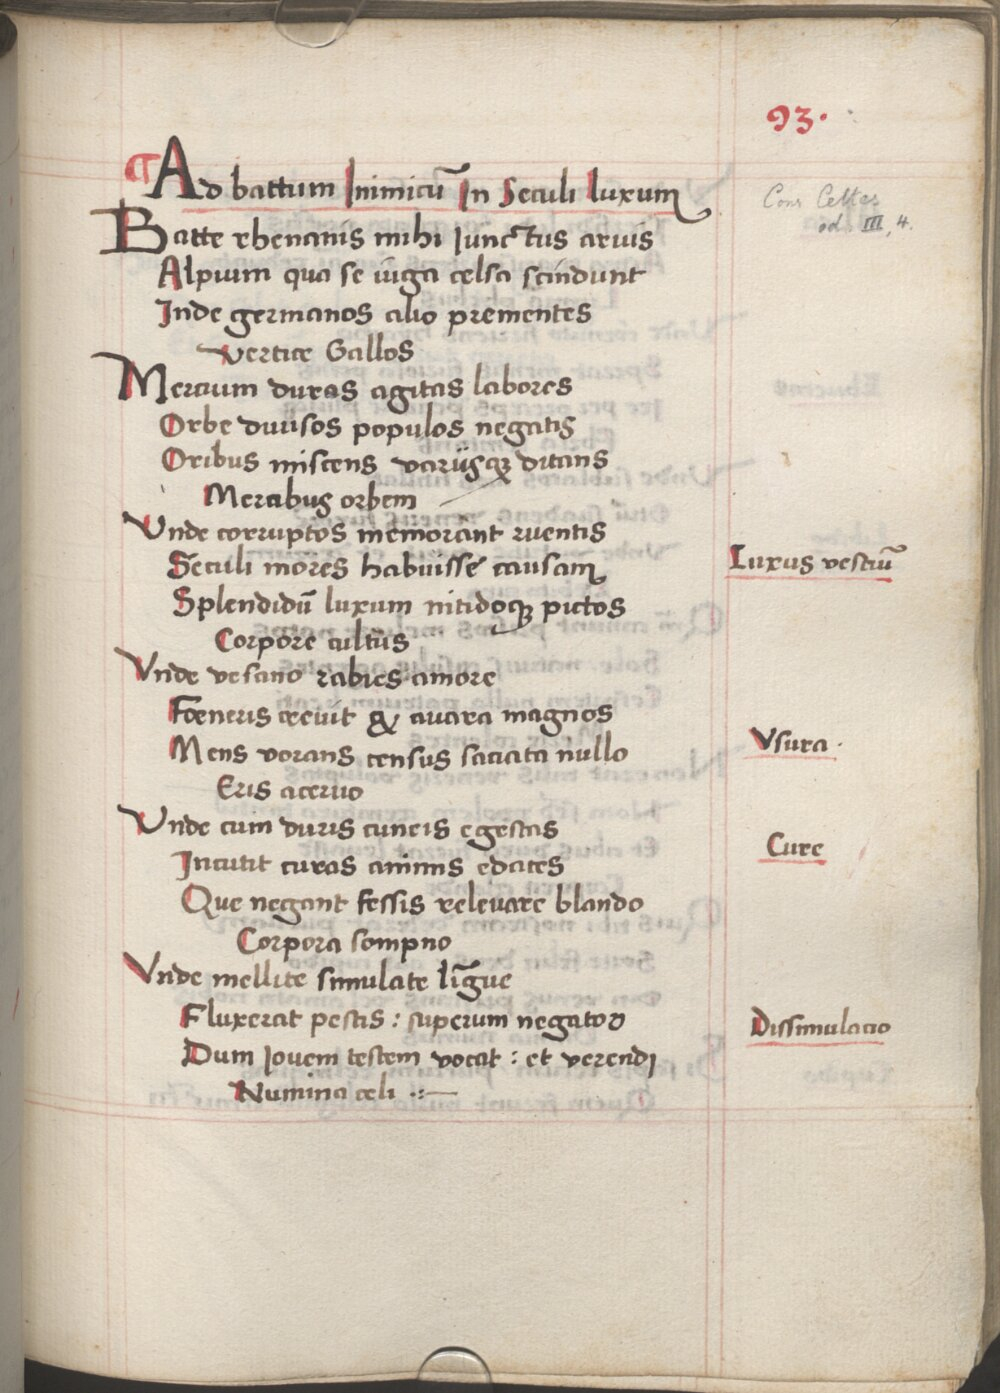 93.
¶Ad battum Inimicū In Seculi luxum
Conr Celtes
od. III, 4.
Batte rhenanis mihi Iunctus aruis
Alpium qua se iuga celsa scindunt
Inde germanos alio prementes
vertice Gallos
Mercium duras agitas labores
Orbe diuisos populos negatis
Oribus miscens varijsqꝫ ditans
Mercibus orbem
Vnde corruptos memorant ruentis
Seculi mores habuisse causam
Luxus vestiū
Splendidū luxum nitidoqꝫ pictos
Corpore cultus
Vnde vesano rabies amore
Foeneris creuit & auara magnos
Vsura.
Mens vorans census saciata nullo
Eris aceruo
Vnde cum duris cuneis egestas
Cure
Incutit curas animis edaces
Que negant fessis releuare blando
Corpora sompno
Vnde mellite simulate līgue
Fluxerat pestis : superum negator
Dissimulacio
Dum Iouem testem vocat : et verendj
Numina celi .:—